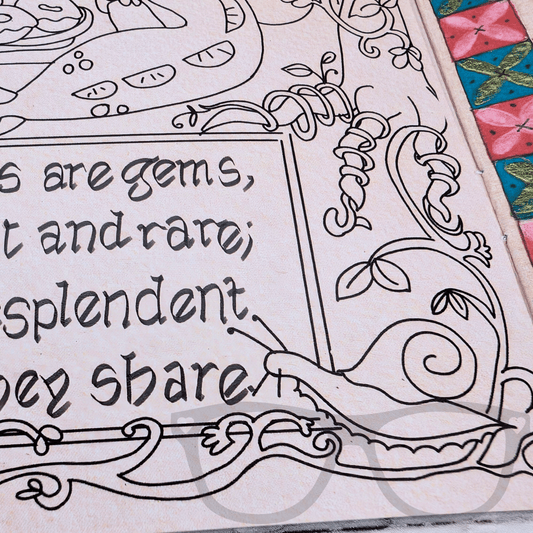 s are gems,
t and rare;
splendent
hey share